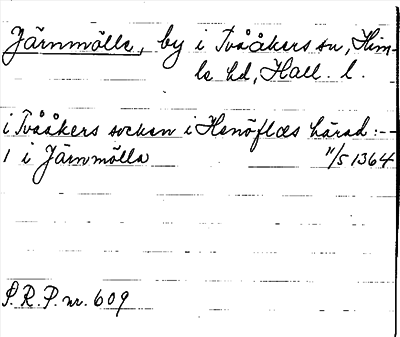 Järnmölla, by i Tvååkers sn, Him-
le hd, Hall. l.
i Tvååkers socken i Henöflæs härad: --
1 i Järnmölla 11/5 1364
S.R.P. nr. 609